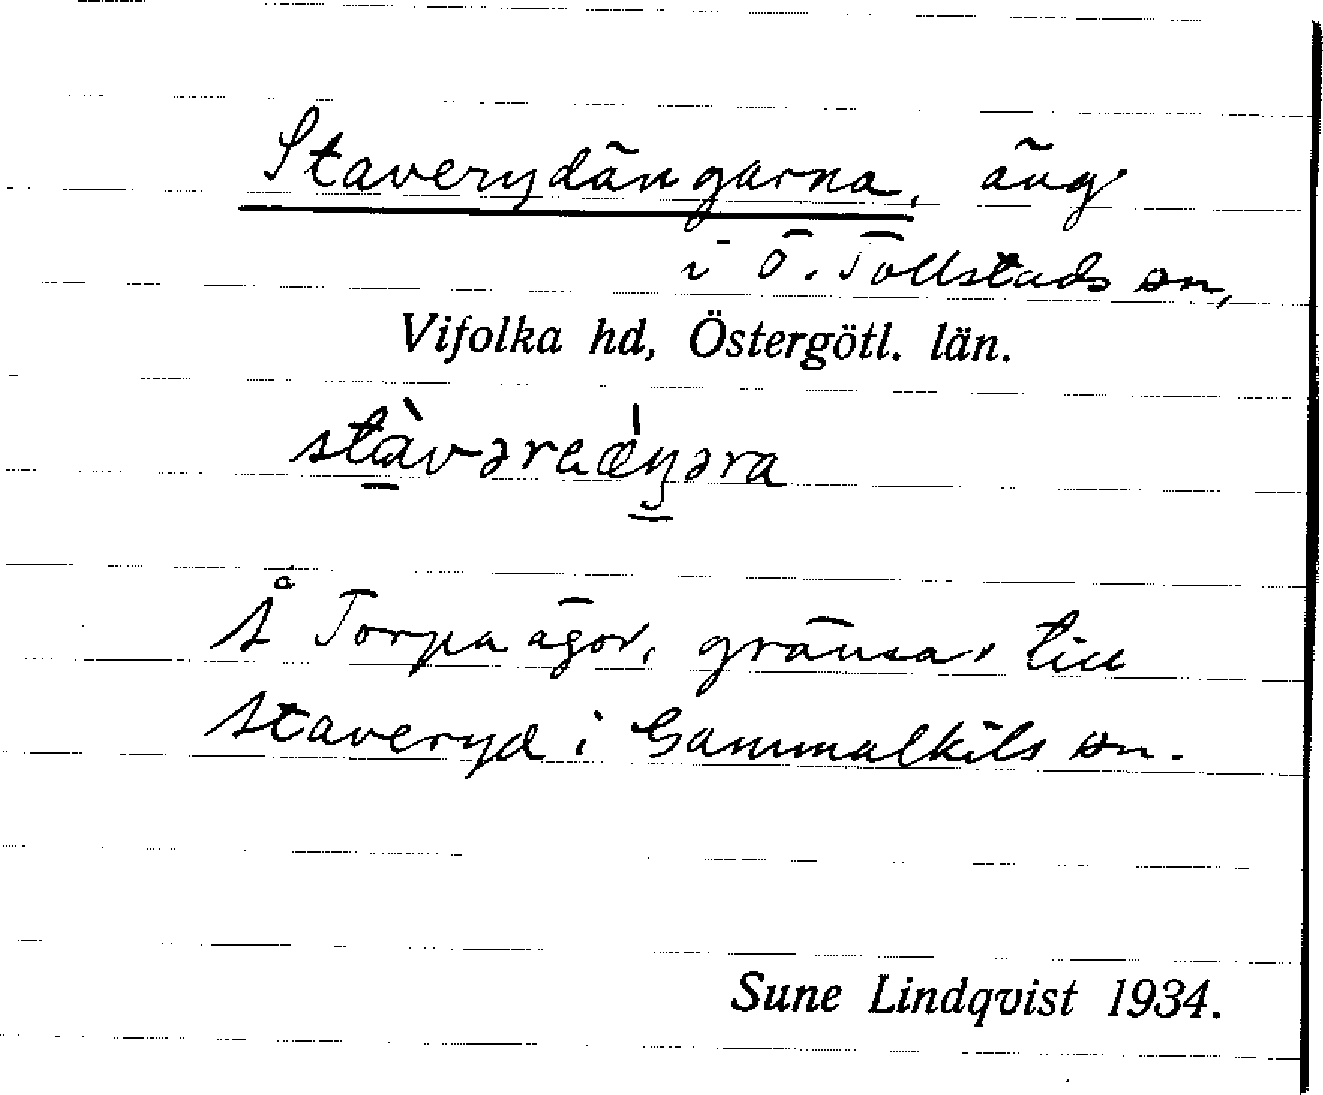 Staverydängarna, äng
i Ö. Tollstads sn,
Vifolka hd, Östergötl. län.
stàvəraæ̀ŋəra
Å Torpa ägor, gränsar till
Staveryd i Gammalkils sn.
Sune Lindqvist 1934.